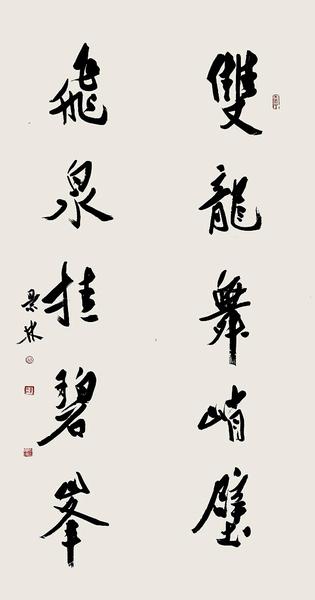 雙龍舞峭壁
飛泉挂碧峯
景林